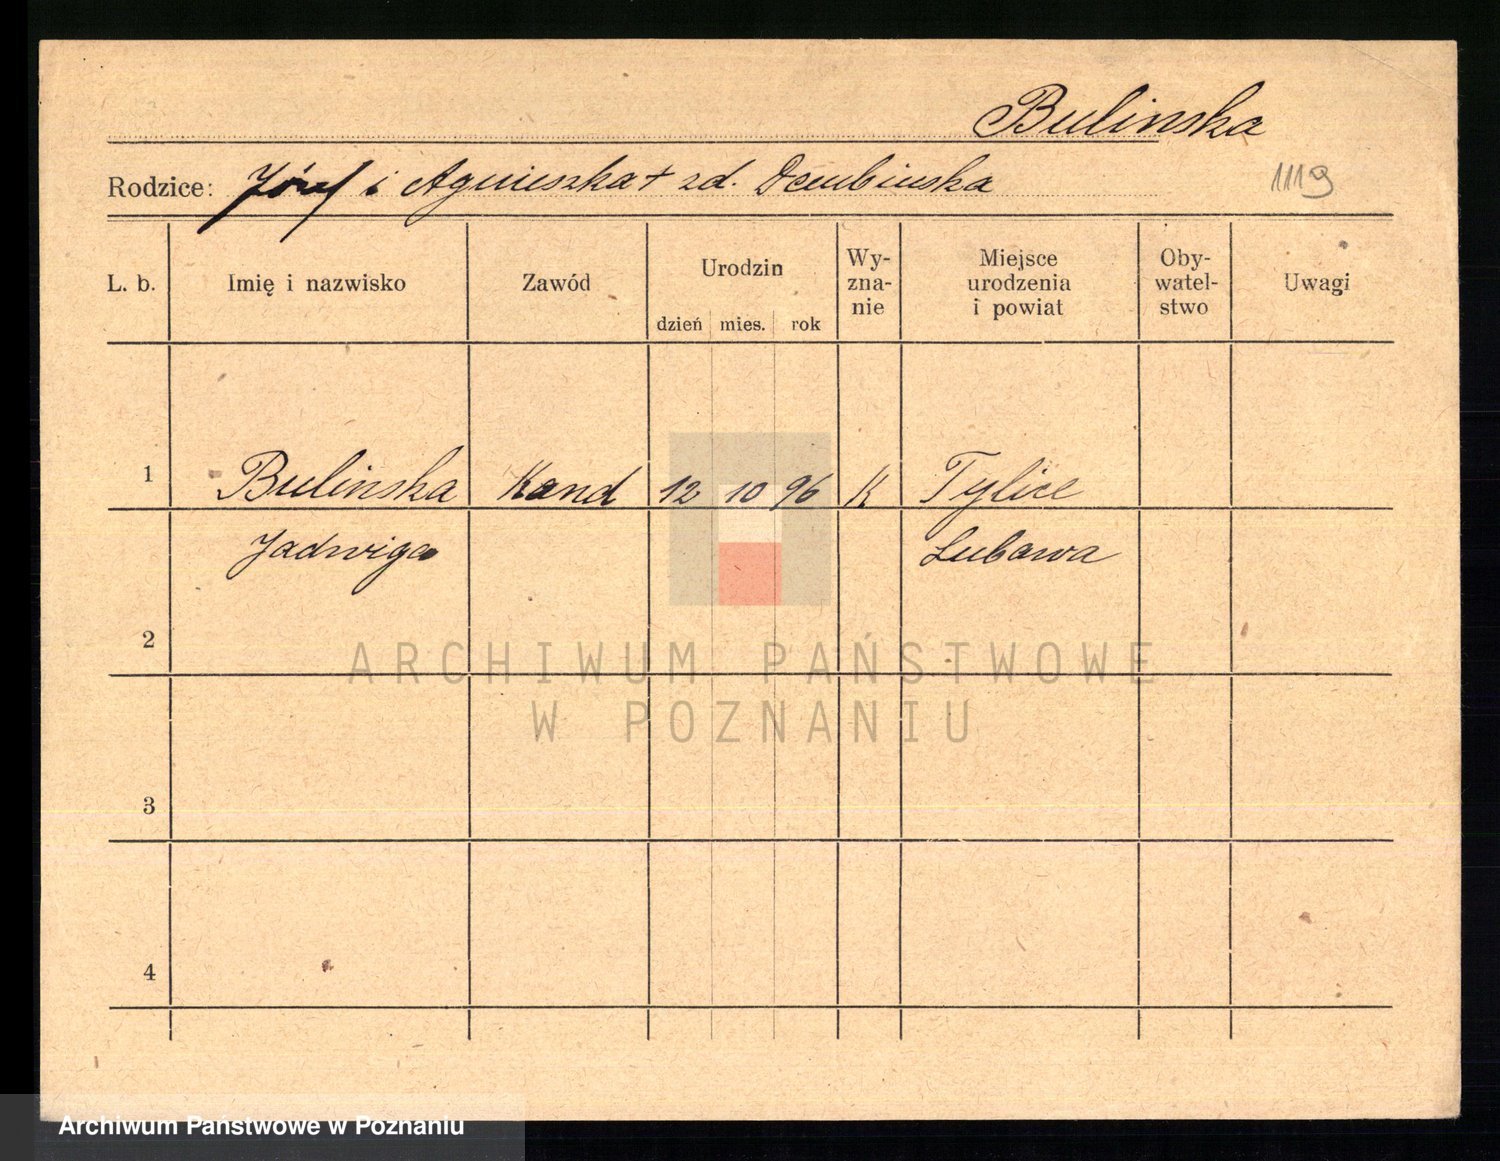 Bulinska
Rodzice: Józef i Agnieszka + zd. Dembinska
1119
L. b. Imię i nazwisko Zawód Urodzin Wy-zna-nie Miejsce urodzenia i powiat Oby-watel-stwo Uwagi
dzień mies. rok
1 Bulinska Kand 12 10 96 K Tylice
Jadwiga Lubawa
2
ARCHIWUM PAŃSTWOWE
W POZNANIU
3
4
Archiwum Państwowe w Poznaniu